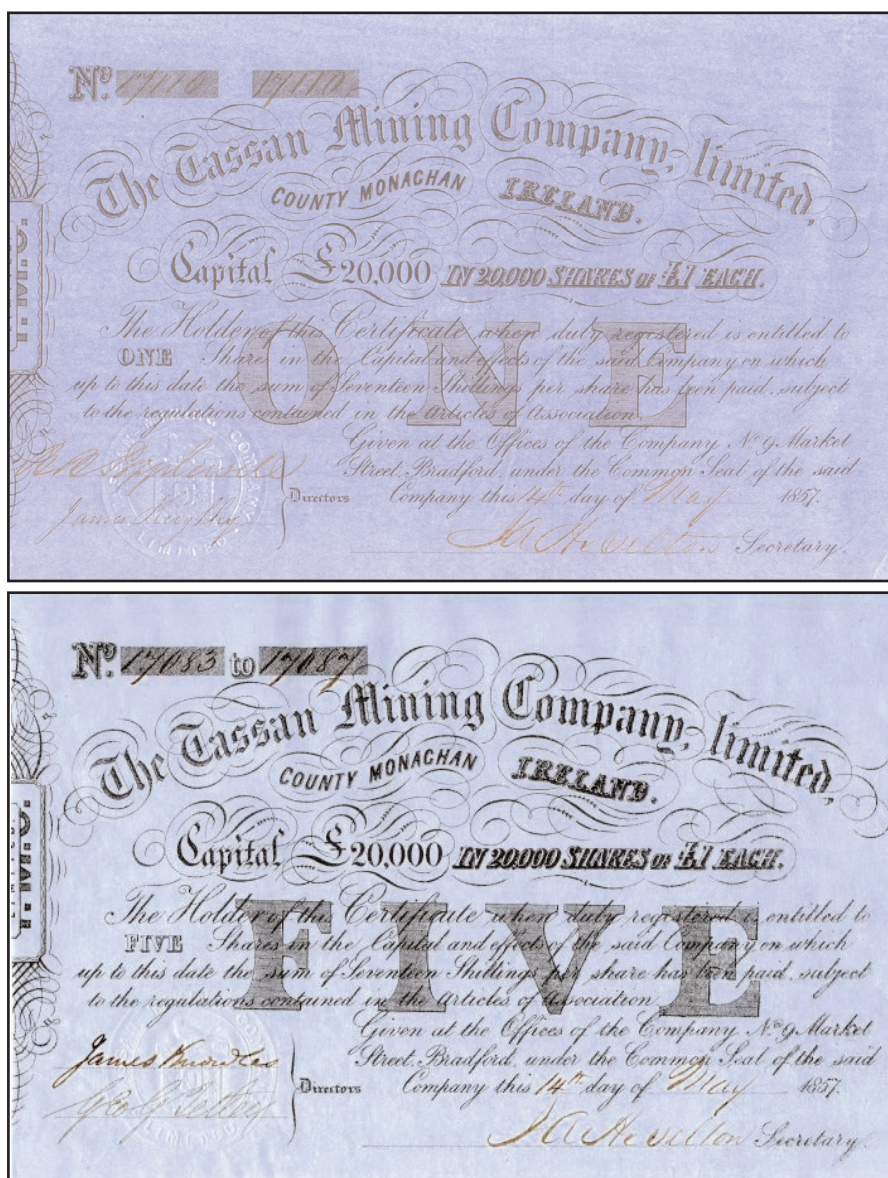 Nº 17110 17110
The Tassan Mining Company, limited,
COUNTY MONACHAN IRELAND.
Capital £20,000 IN 20,000 SHARES OF £1 EACH.
ONE
The Holder of this Certificate when duly registered is entitled to
ONE Share in the Capital and effects of the said Company on which
up to this date the sum of Seventeen Shillings per share has been paid, subject
to the regulations contained in the Articles of Association.
Given at the Offices of the Company Nº 9 Market
Street, Bradford, under the Common Seal of the said
Company this 14th day of May 1857.
James Keighley
Directors
Secretary.
LIMITED
Nº 17083 to 17087
The Tassan Mining Company, limited,
COUNTY MONACHAN IRELAND.
Capital £20,000 IN 20,000 SHARES OF £1 EACH.
FIVE
The Holder of this Certificate when duly registered is entitled to
FIVE Shares in the Capital and effects of the said Company on which
up to this date the sum of Seventeen Shillings per share has been paid, subject
to the regulations contained in the Articles of Association.
Given at the Offices of the Company Nº 9 Market
Street, Bradford, under the Common Seal of the said
Company this 14th day of May 1857.
James Knowles
Geo G Tetley
Directors
Secretary.
LIMITED